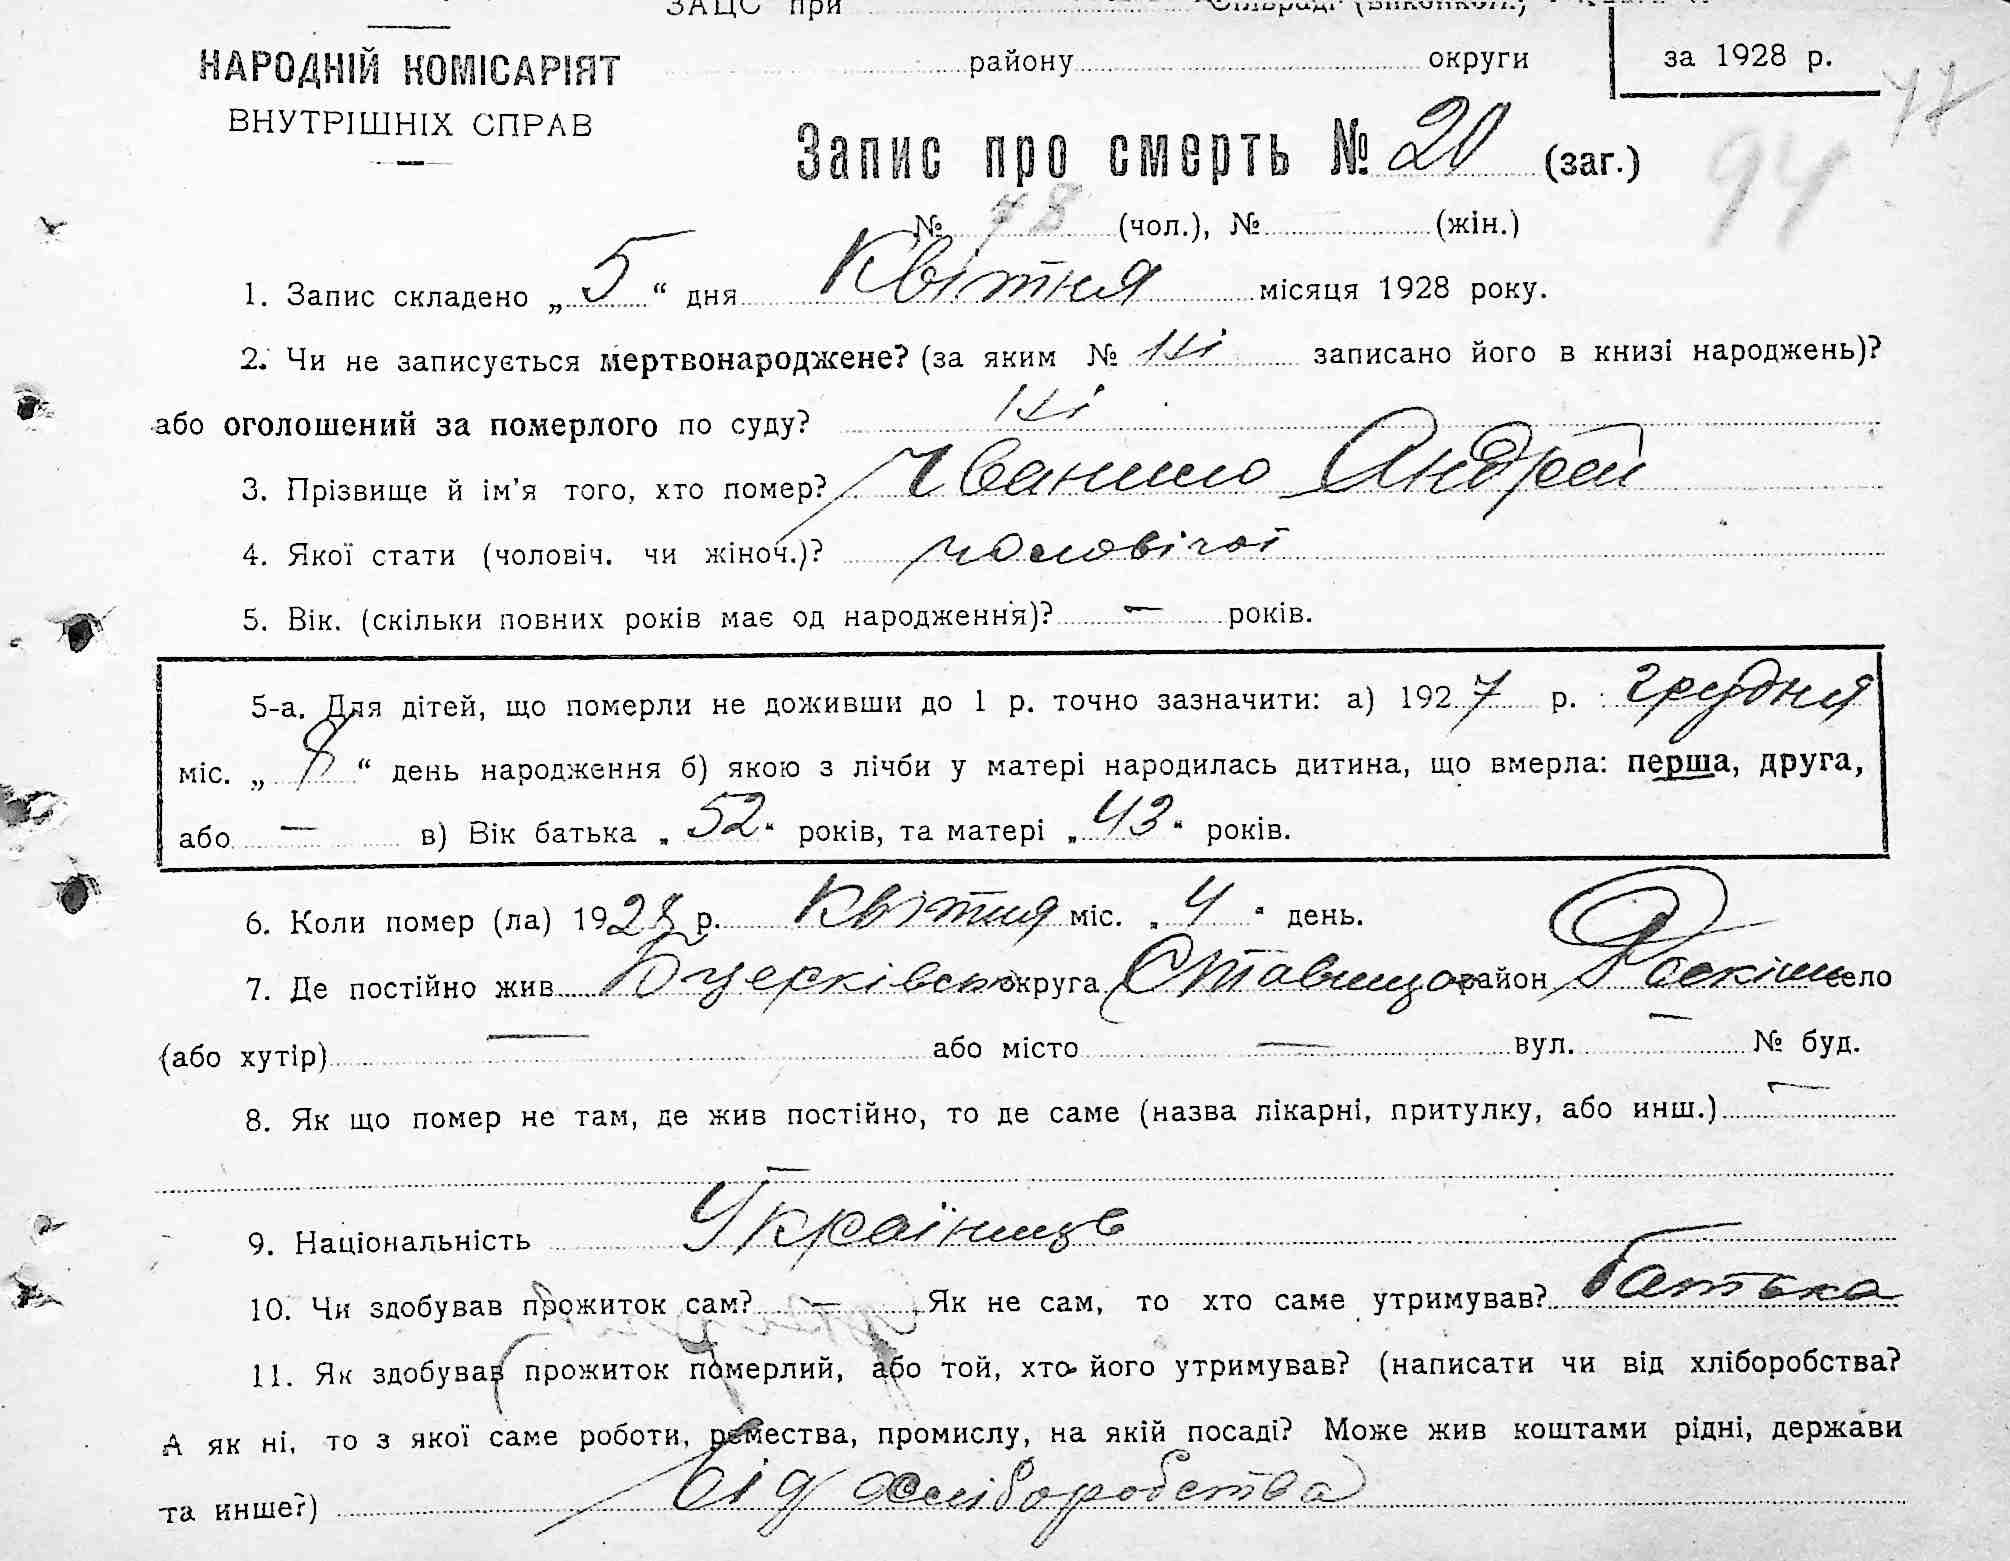 ЗАЦС при
НАРОДНІЙ КОМІСАРІЯТ
ВНУТРІШНІХ СПРАВ
району округи
за 1928 р.
Запис про смерть № 20 (заг.)
94
№ (чол.), № (жін.)
1. Запис складено „ 5 “ дня Квітня місяця 1928 року.
2. Чи не записується мертвонароджене? (за яким № Ні записано його в книзі народжень)?
або оголошений за померлого по суду? Ні
3. Прізвище й ім'я того, хто помер? Андрей
4. Якої стати (чоловіч. чи жіноч.)? чоловічої
5. Вік. (скільки повних років має од народження)? — років.
5-а. Для дітей, що померли не доживши до 1 р. точно зазначити: а) 1927 р. грудня
міс. „ 8 “ день народження б) якою з лічби у матері народилась дитина, що вмерла: перша, друга,
або — в) Вік батька „ 52 “ років, та матері „ 43 “ років.
6. Коли помер (ла) 1928 р. Квітня міс. „ 4 “ день.
7. Де постійно жив Бцерківськ округа Ставищо район село
(або хутір) — або місто — вул. — № буд.
8. Як що помер не там, де жив постійно, то де саме (назва лікарні, притулку, або инш.) —
9. Національність Українець
10. Чи здобував прожиток сам? — Як не сам, то хто саме утримував? батька
11. Як здобував прожиток померлий, або той, хто його утримував? (написати чи від хліборобства?
А як ні, то з якої саме роботи, ремества, промислу, на якій посаді? Може жив коштами рідні, держави
та инше?) Від хліборобства